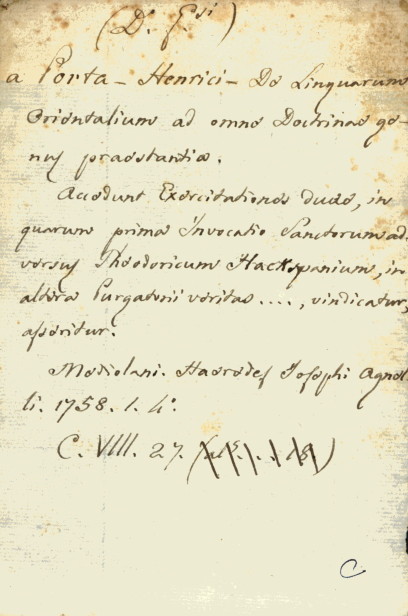 (D. Esi)
a Porta - Henrici - De Linguarum
Orientalium ad omne Doctrinae ge-
nus praestantia.
Accedunt Exercitationes duae, in
quarum prima Invocatio Sanctorum ad-
versus Theodoricum Hackspanium, in
altera Purgatorii veritas ...., vindicatur,
asseritur.
Mediolani. Haeredes Josephi Agnel-
li. 1758. 1. 4º.
C. VIII. 27.
C